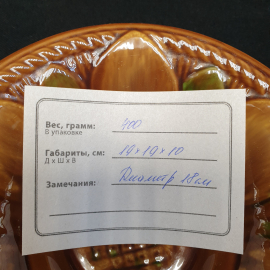 Вес, грамм: 400
В упаковке
Габариты, см: 19×19×10
Д х Ш х В
Замечания: Диаметр 18 см